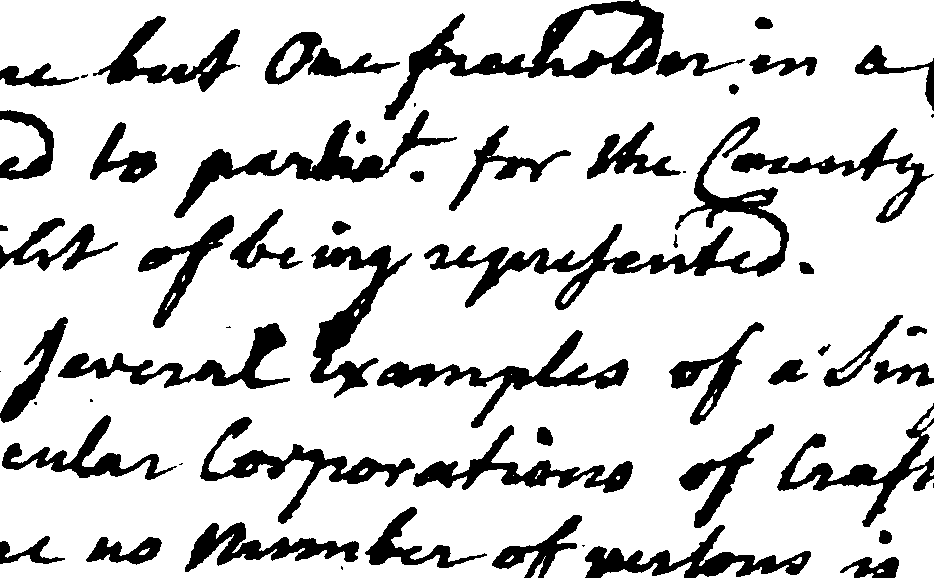 but One freeholder in a
ed to parliat. for the County
of being represented.
Several Examples of a Sin
cular Corporations of Craft
no Number of persons is